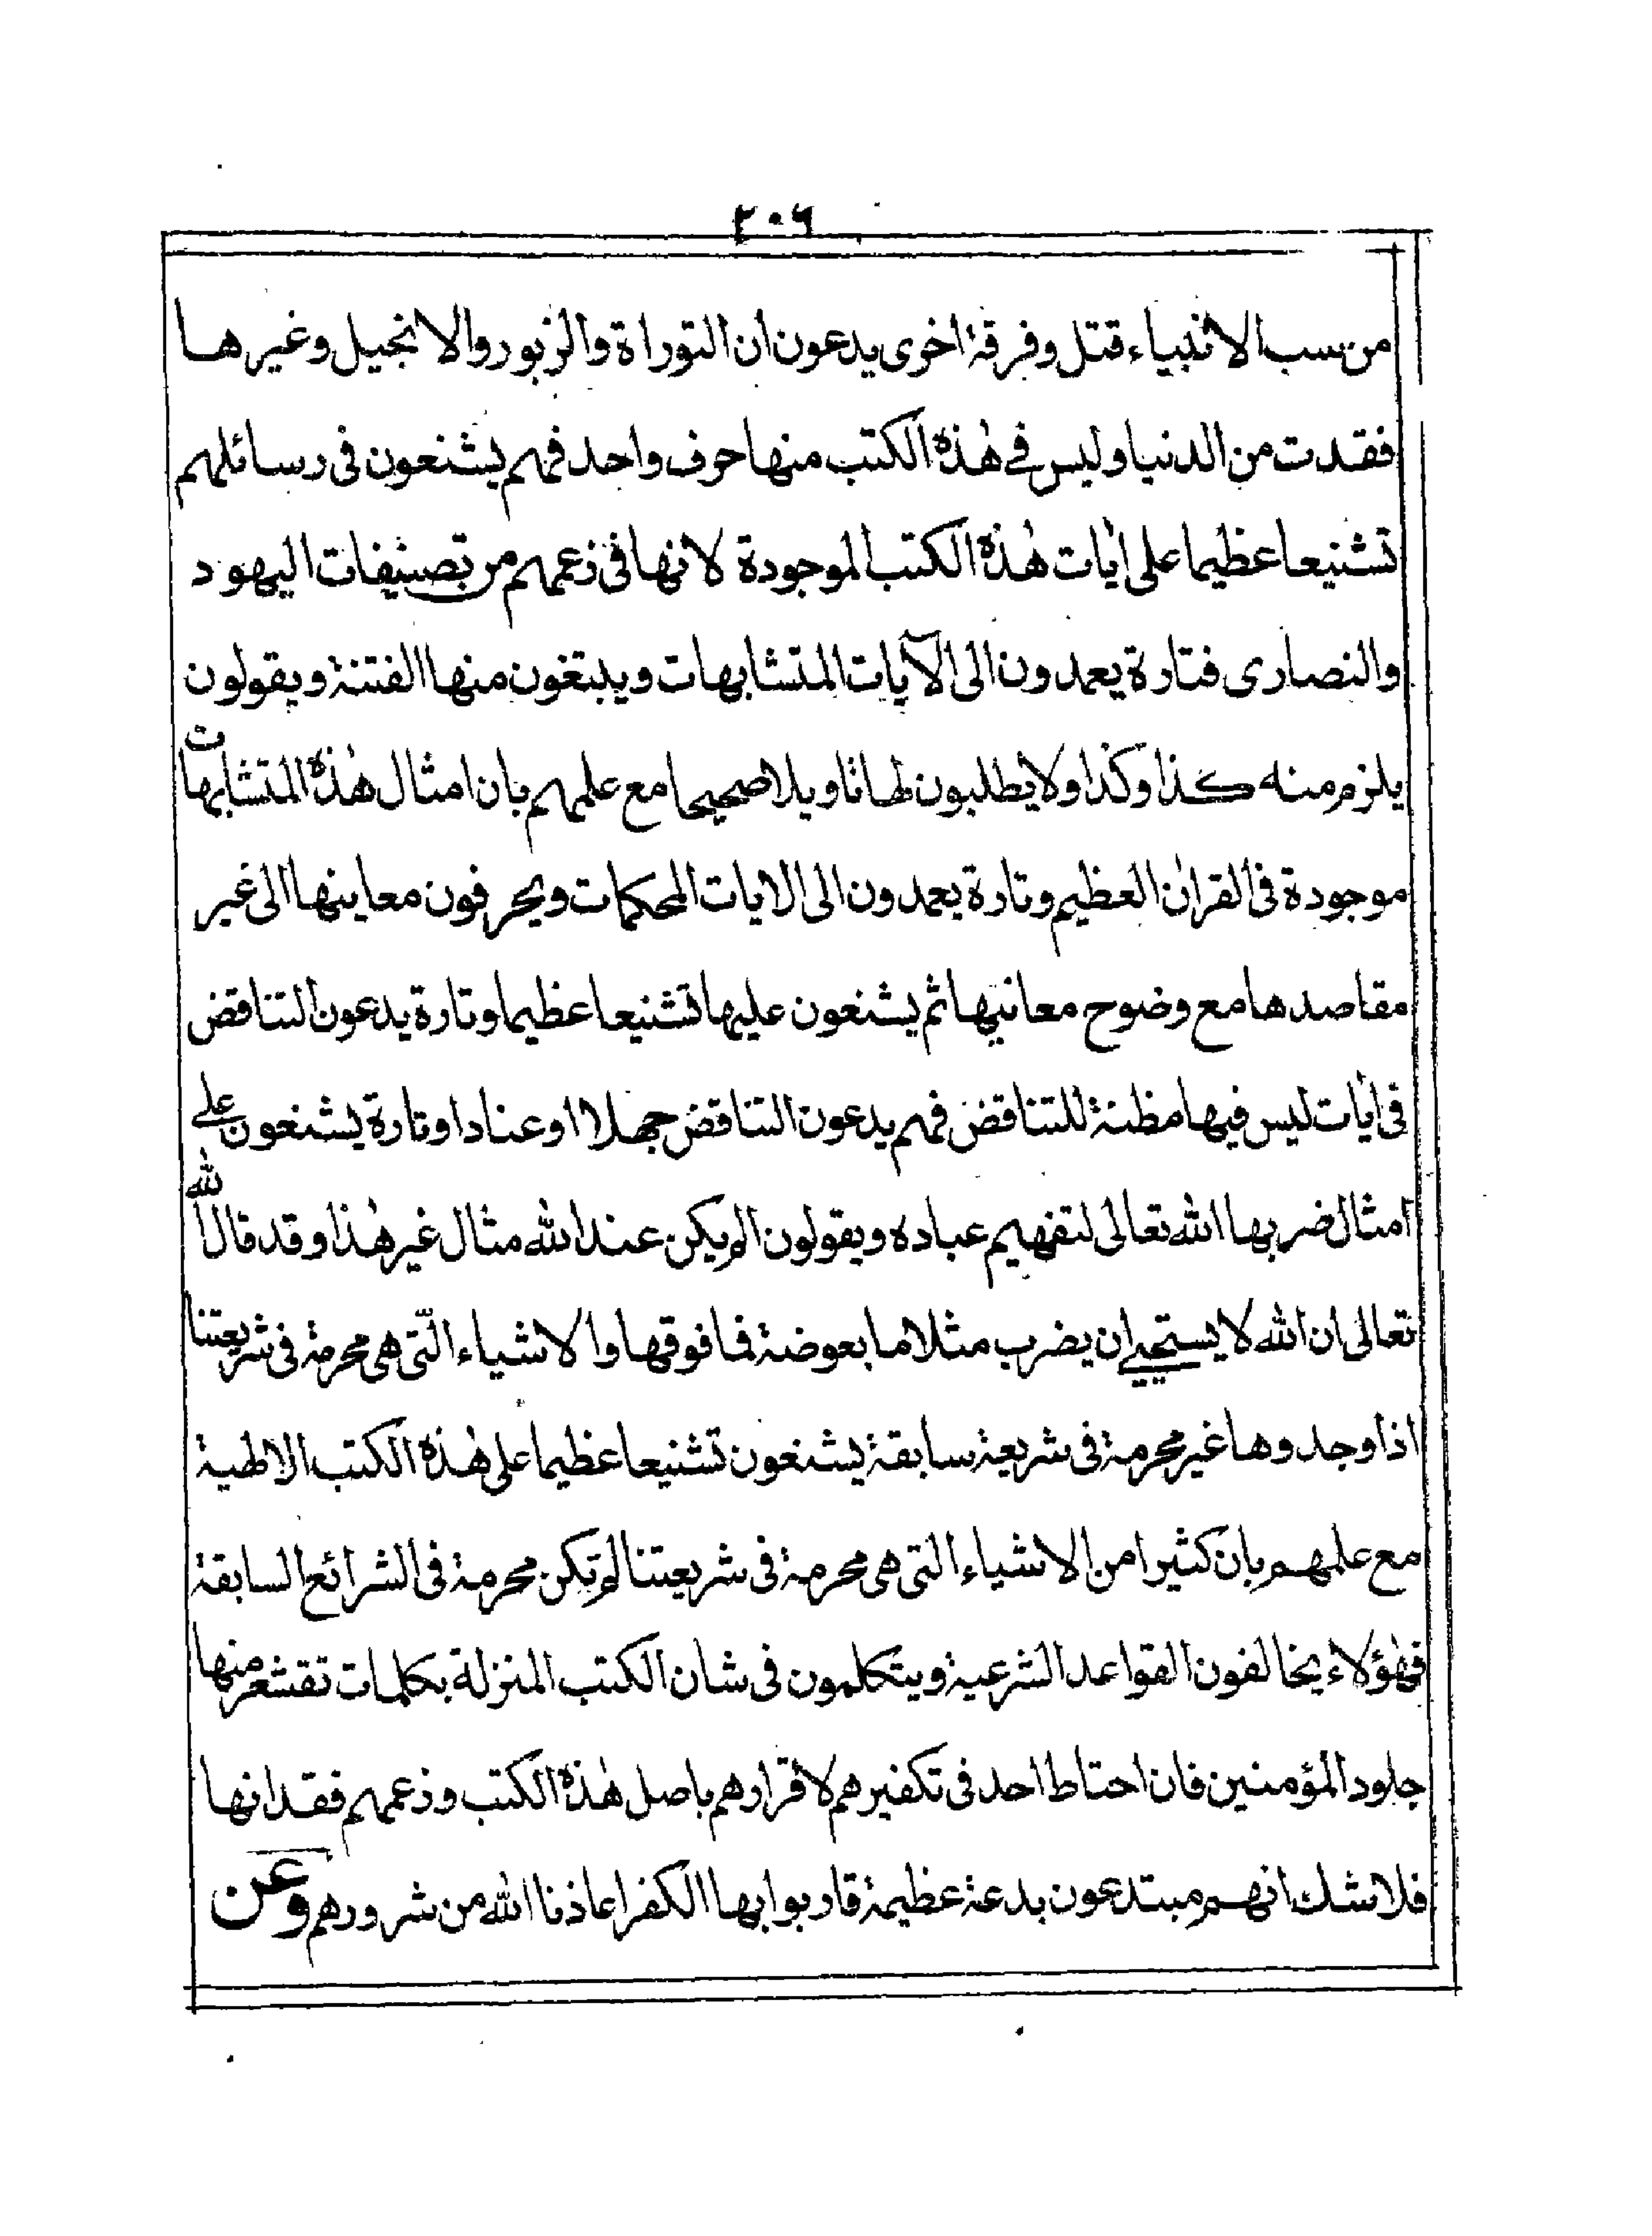 ٢٠٦
من سب الانبياء قتل وفرقة اخرى يدعون ان التوراة والزبور والانجيل وغيرها
فقدت من الدنيا وليس في هٰذه الكتب منها حرف واحد فهم يشنعون فى رسائلهم
تشنيعا عظيما على اٰيات هٰذه الكتب الموجودة لانها فى زعمهم من تصنيفات اليهود
والنصارى فتارة يعمدون الى الآيات المتشابهات ويبتغون منها الفتنة ويقولون
يلزم منه كذا وكذا ولا يطلبون لها تاويلا صحيحا مع علمهم بان امثال هٰذه المتشابهات
موجودة فى القراٰن العظيم وتارة يعمدون الى الايات المحكمات ويحرفون معاينها الى غير
مقاصدها مع وضوح معانيها ثم يشنعون عليها تشنيعا عظيما وتارة يدعون التناقض
فى اٰيات ليس فيها مظنة للتناقض فهم يدعون التناقض جهلا او عنادا وتارة يشنعون علے
امثال ضربها الله تعالى لتفهيم عباده ويقولون الم يكن عند الله مثال غير هٰذا وقد قال الله
تعالى ان الله لا يستحيے ان يضرب مثلا ما بعوضة فما فوقها والاشياء الّتى هى محرمة فى شريعتنا
اذا وجدوها غير محرمة فى شريعة سابقة يشنعون تشنيعا عظيما على هٰذه الكتب الالٰهية
مع علمهم بان كثيرا من الاشياء التى هى محرمة فى شريعتنا لم تكن محرمة فى الشرائع السابقة
فهٰؤلاء يخالفون القواعد الشرعية ويتكلمون فى شان الكتب المنزلة بكلمات تقشعر منها
جلود المؤمنين فان احتاط احد فى تكفيرهم لاقرارهم باصل هٰذه الكتب وزعمهم فقدانها
فلا شك انهم مبتدعون بدعة عظيمة قاربوا بها الكفر اعاذنا الله من شرورهم وعن